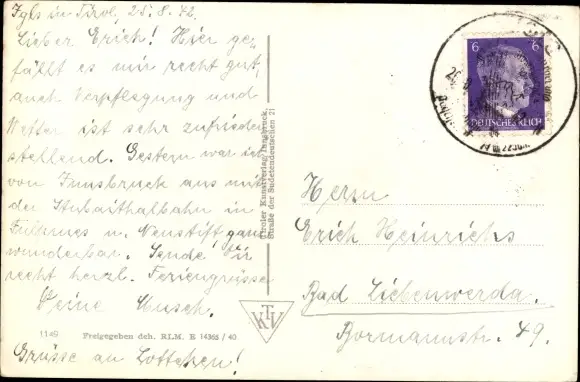 Igls in Tirol, 25.8.42.
Lieber Erich! Hier ge-
fällt es mir recht gut,
auch Verpflegung und
Wetter ist sehr zufrieden
stellend. Gestern war ich
von Innsbruck aus mit
der Stubaithalbahn in
Fulpmes u. Neustift ganz
wunderbar. Sende Dir
recht herzl. Feriengrüsse
Deine
1149 Freigegeben dch. RLM. B 14365/40
Grüsse an Lottchen!
Tiroler Kunstverlag, Innsbruck,
Straße der Sudetendeutschen 21
KTV
6 6
DEUTSCHES REICH
Herrn
Erich Heinrichs
Bad Liebenwerda.
Bormannstr. 49.